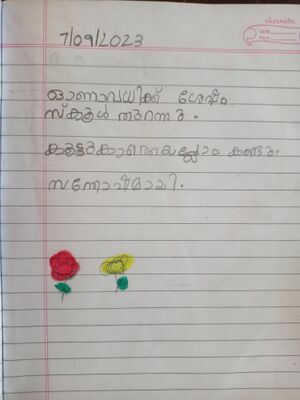 7/09/2023
ഓണാവധിക്ക് ശേഷം
സ്കൂൾ തുറന്നു.
കൂട്ടുകാരെയെല്ലാം കണ്ടു.
സന്തോഷമായി.